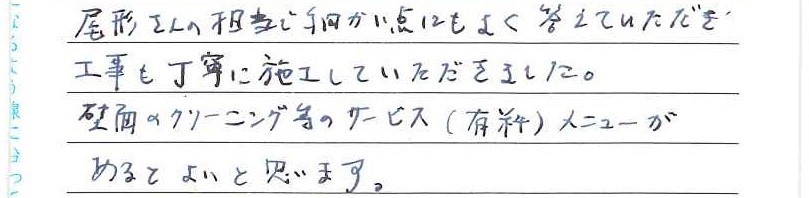 尾形さんの担当で細かい点にもよく答えていただき
工事も丁寧に施工していただきました。
壁面のクリーニング等のサービス(有料)メニューが
あるとよいと思います。